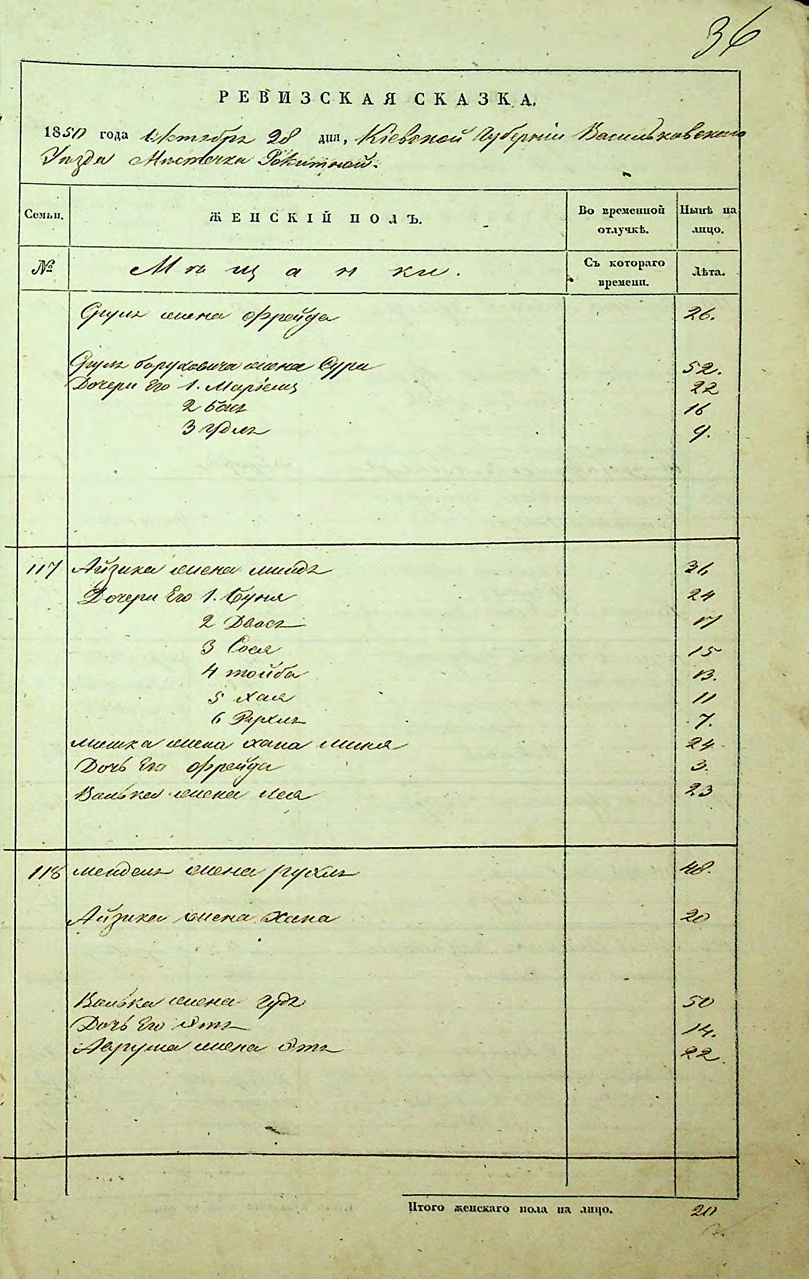 36
РЕВИЗСКАЯ СКАЗКА.
1850 года Октября 28 дня, Кіевской Губерніи Васильковского
Уезда Местечка Рокитной.
Семьи. ЖЕНСКІЙ ПОЛЪ. Во временной отлучкѣ. Нынѣ на лицо.
№ Мѣщанки. Съ котораго времени. Лѣта.
Сруля жена Фрейда 26.
Сруля Боруховича жена Сура 52.
Дочери Его 1. 22
2 16
3 9.
117 Айзика жена 36
Дочери Его 1. Буня 24
2 Двося 17
3 Сося 15
4 тойба 13.
5 хая 11
6 Рухля 7.
мошка жена хана 24
Дочь Его Фрейда 3.
Волька жена Лея 23
118 менделя жена рухля 48.
Айзика жена Хана 20
Волька жена 50
Дочь Его Этя 14.
Аврума жена Этя 22
Итого женскаго пола на лицо. 20